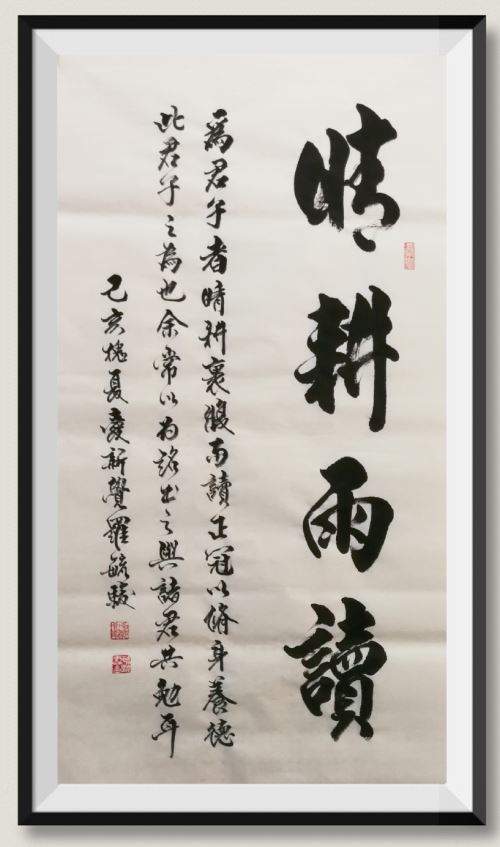 晴耕雨讀
爲君子者晴耕裹腹雨讀正冠以脩身養德
此君子之為也余常以为銘出之與諸君共勉耳
己亥槐夏愛新覺羅毓